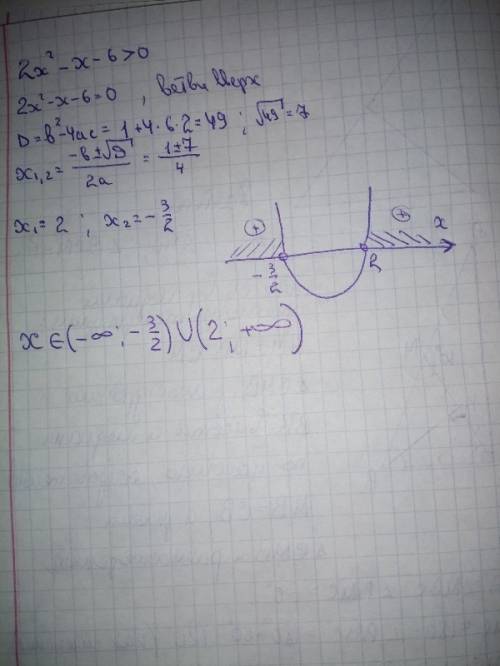 2x² - x - 6 > 0
2x² - x - 6 = 0 , ветви вверх
D = b² - 4ac = 1 + 4 · 6 · 2 = 49 ; √49 = 7
x₁,₂ = (-b ± √D)/2a = (1 ± 7)/4
x₁ = 2 ; x₂ = - 3/2
+ + x
- 3/2 2
x ∈ (-∞ ; - 3/2) ∪ (2 ; +∞)